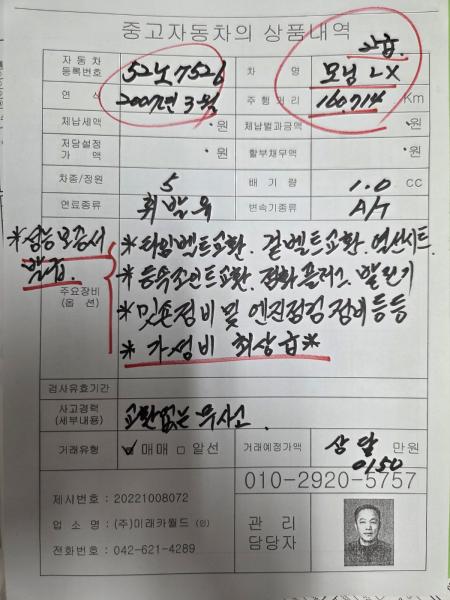 중고자동차의 상품내역
자동차 등록번호 52노7526 차 명 모닝 LX 고급.
연 식 2007년 3월 주행거리 160,714 Km
체납세액 · 원 체납벌과금액 · 원
저당설정 가 액 · 원 할부채무액 · 원
차종/정원 5 배 기 량 1.0 cc
연료종류 휘발유 변속기종류 A/T
*성능보증서 발급.
주요장비 (옵 션)
*타임벨트교환. 겉벨트교환.
*등속조인트교환. 점화플러그.
*밋숀정비 및 엔진점검 정비등등
*가성비 최상급*
검사유효기간
사고경력 (세부내용) 교환없는 무사고.
거래유형 ☑ 매매 □ 알선 거래예정가액 상담 0150 만원
010-2920-5757
제시번호 : 20221008072
업 소 명 : (주)미래카월드 (인)
전화번호 : 042-621-4289
관 리 담당자